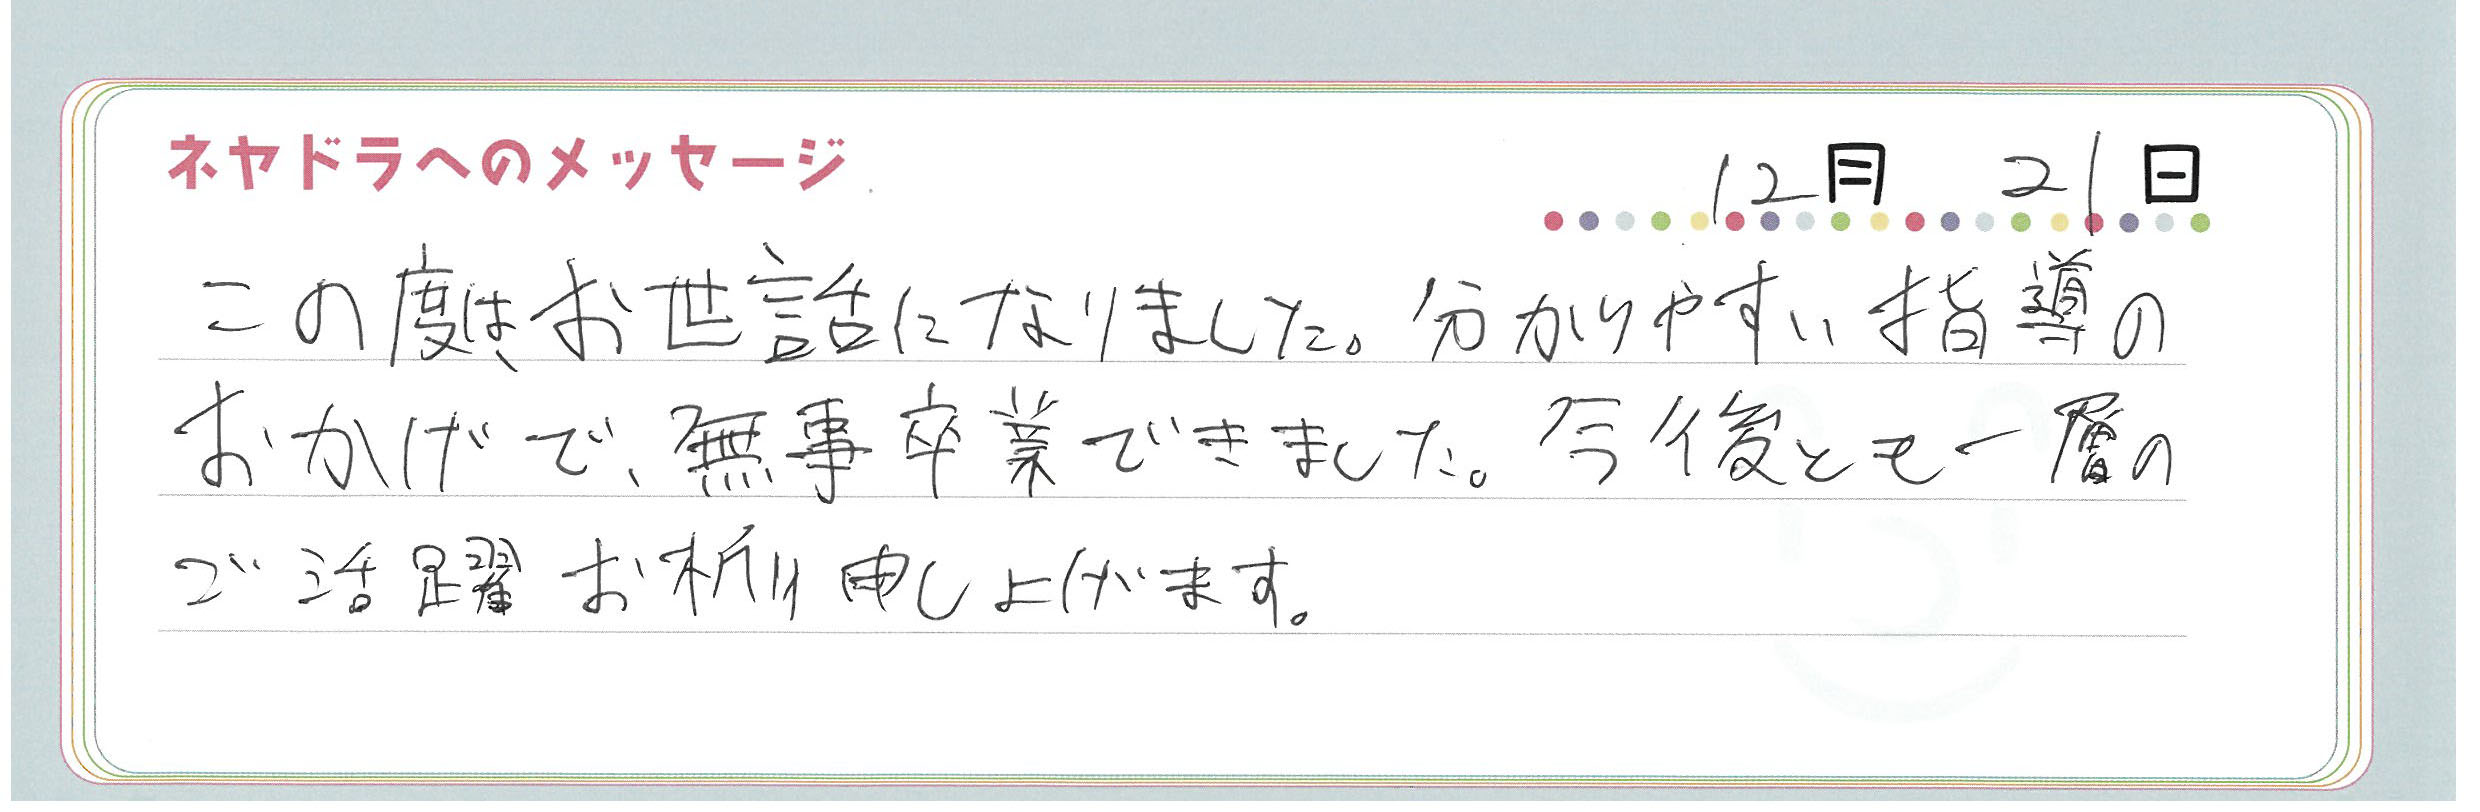 ネヤドラへのメッセージ
12月 21日
この度は、お世話になりました。分かりやすい指導の
おかげで、無事卒業できました。今後とも一層の
ご活躍お祈り申し上げます。